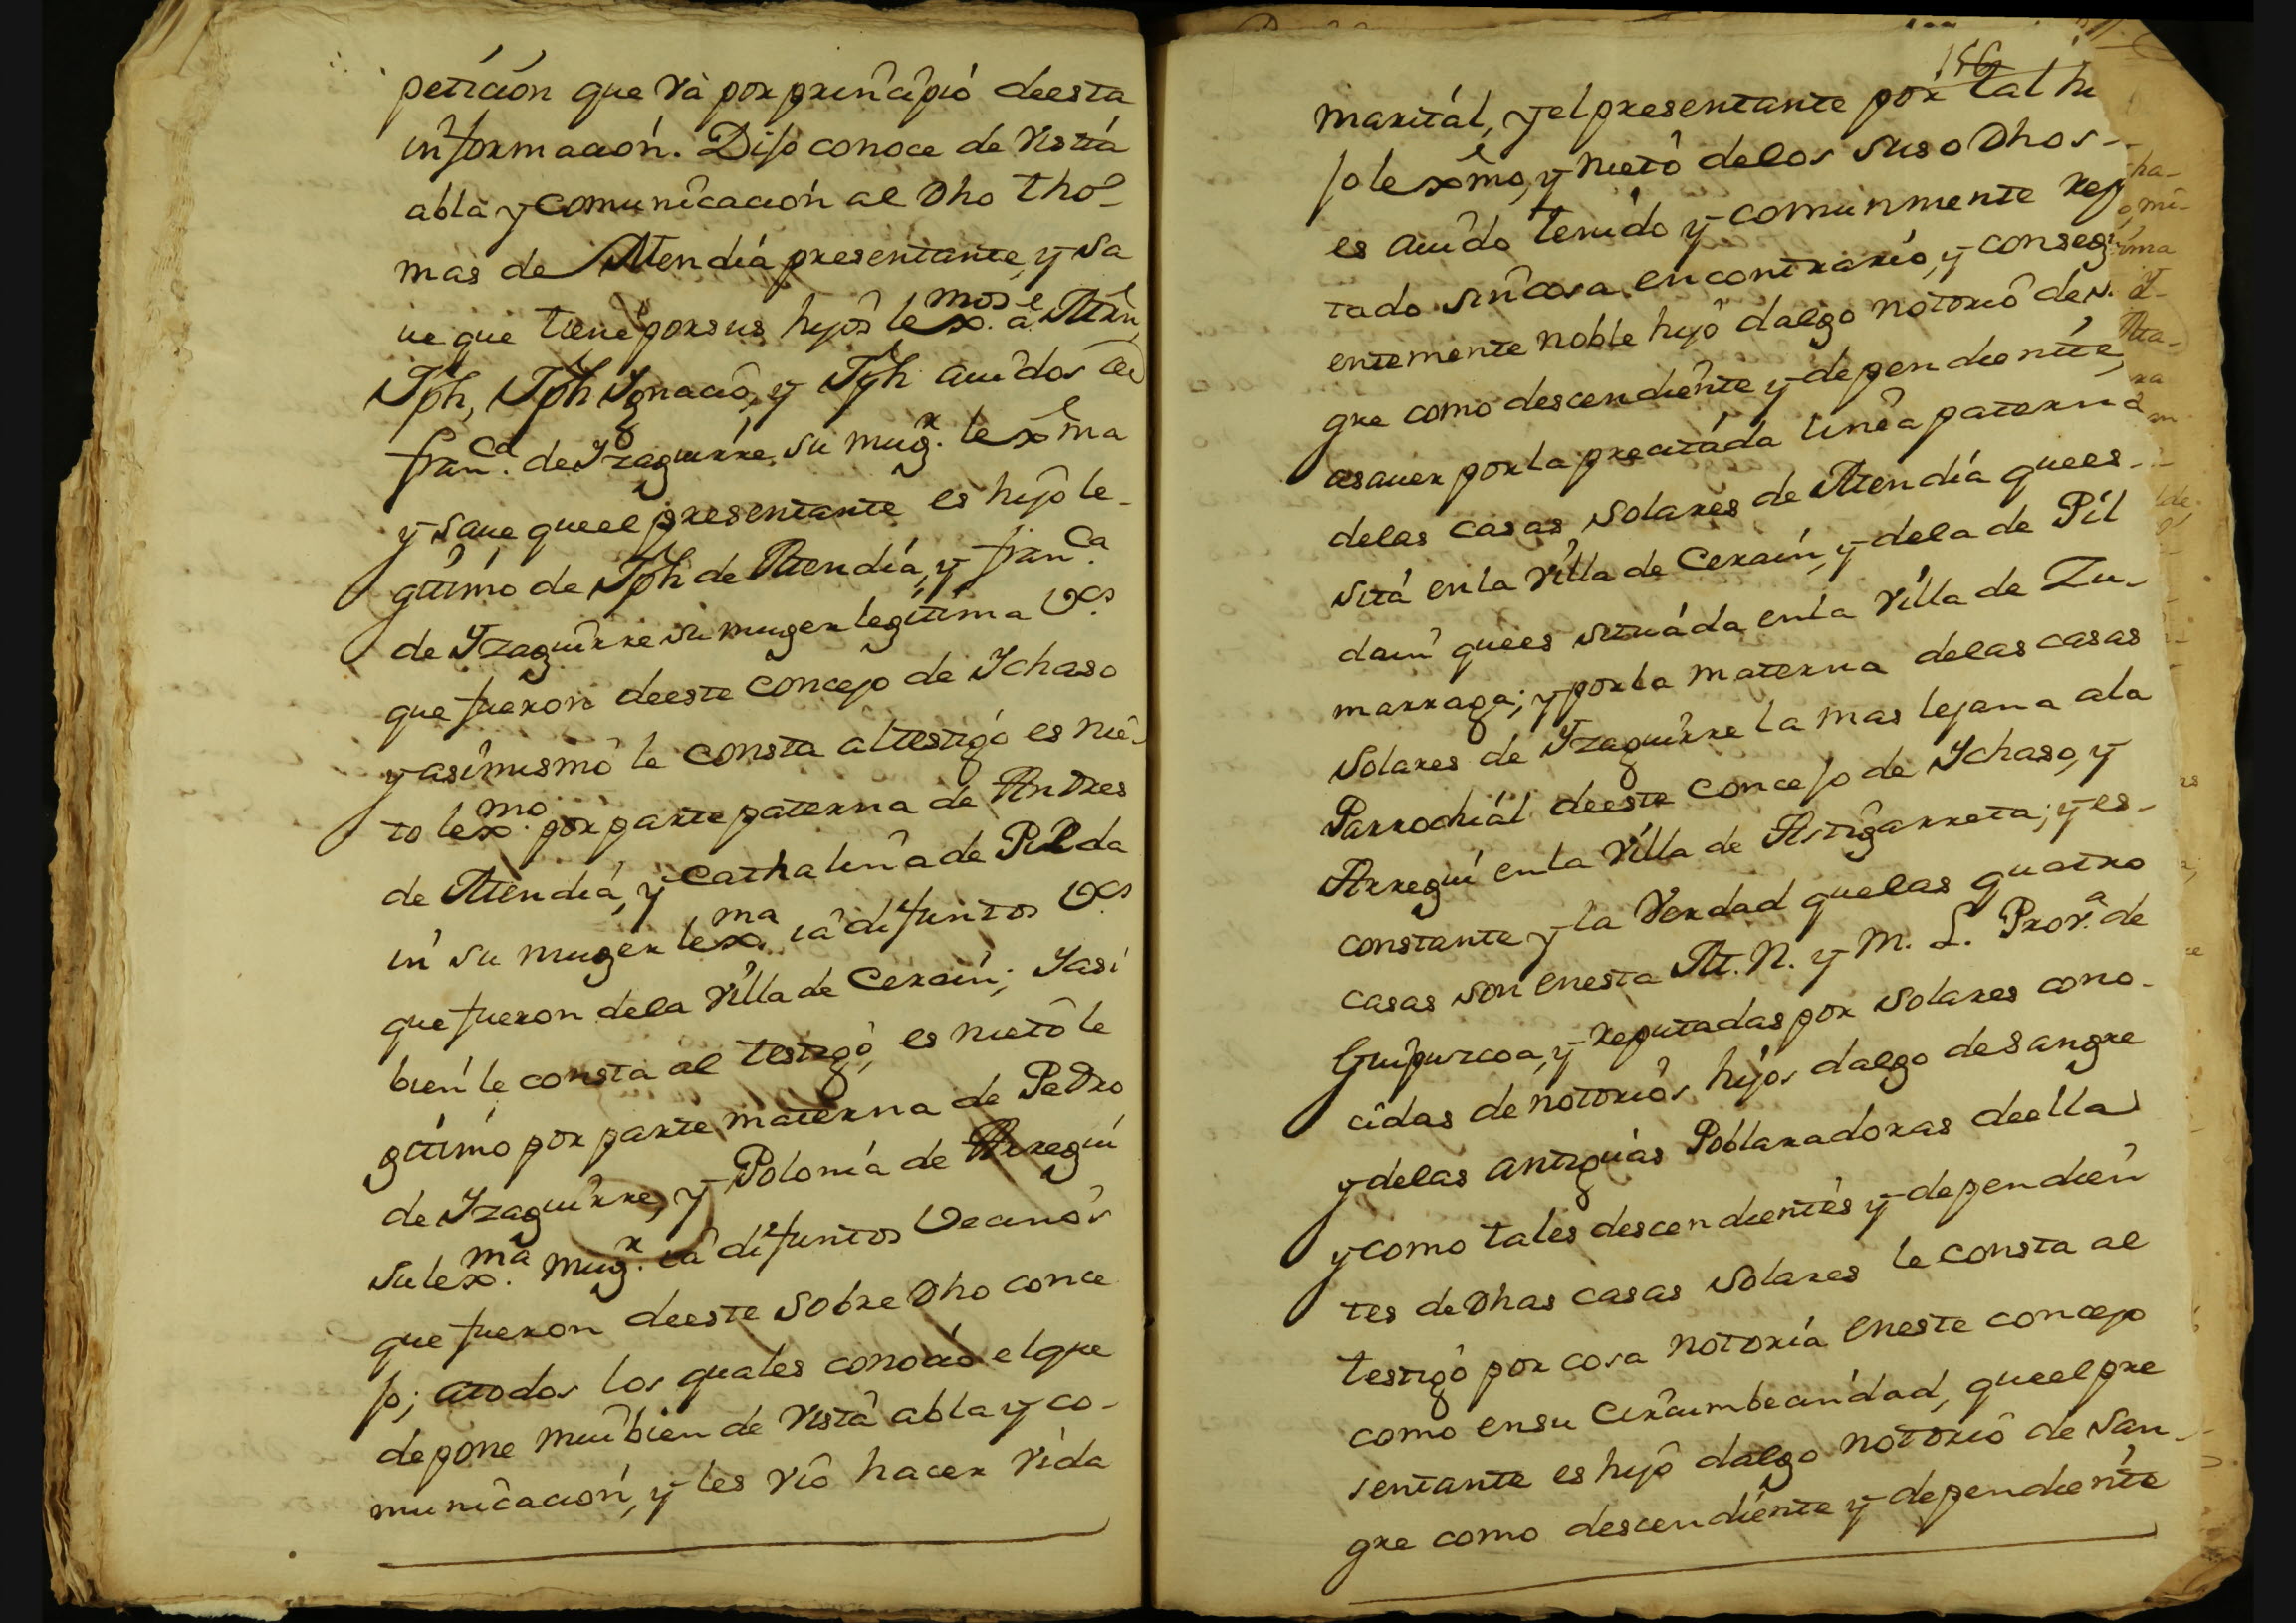 petición que và por principió deesta
información. Dijo conoce de vista
abla y comunicación al Dho Tho-
mas de Atendia presentante, y sa
ue que tiene por sus hijos lexmos. a
Jph, Jph Ygnacio, y Jph auidos
franca. de Yzaguirre su mugr. lexma
y saue queel presentante es hijo le-
gitimo de Jph de Atendia, y franca.
de Yzaguirre su muger legitima vos
que fueron deeste concejo de Ychaso
y asimismo le consta al testigo es nie-
to lexmo. por parte paterna de Andres
de Atendia, y Cathalina de Pilda
in su muger lexma. ia difuntos vos
que fueron dela villa de Cerain; Yasi
bien le consta al testigo, es nieto le
gitimo por parte materna de Pedro
de Yzaguirre, y Polonia de Arregui
su lexma. mugr. ia difuntos vecinos
que fueron deeste sobre Dho conce
jo; atodos los quales conocio el que
depone mui bien de vista abla y co-
municación, y les vio hacer vida
156
marital, y el presentante por tal hi
jo lexmo, y nieto delos suso Dhos-
es auido tenido y comunmente rep
tado sin cosa en contrario, y conseg
entemente noble hijo dalgo notorio de s
gre como descendiente y dependiente,
asauer por la precitada linea paterna
delas casas solares de Atendia quees-
sita en la villa de Cerain, y dela de Pil
dain quees situada en la villa de Zu-
marraga; y por la materna delas casas
solares de Yzaguirre la mas lejana ala
Parrochial deeste concejo de Ychaso, y
Arregui en la villa de Astigarreta; y es-
constante y la verdad quelas quatro
casas son enesta M. N. y M. L. Prova. de
Guipuzcoa, y reputadas por solares cono-
cidas de notorios hijos dalgo de sangre
y delas antiguas Poblaradoras deella
y como tales descendientes y dependien
tes de Dhas casas solares le consta al
testigo por cosa notoria eneste concejo
como ensu circumbecindad, queel pre
sentante es hijo dalgo notorio de san-
gre como descendiente y dependiente